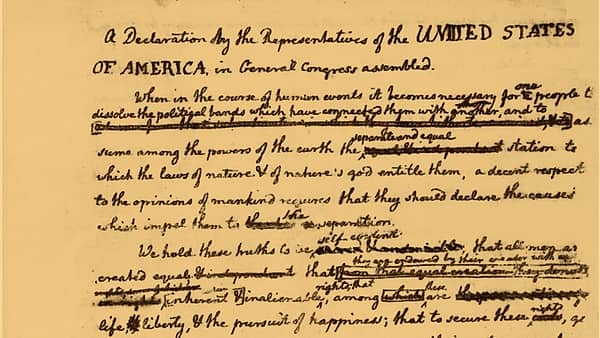 A Declaration by the Representatives of the UNITED STATES
OF AMERICA, in General Congress assembled.
one
When in the course of human events it becomes necessary for a people t
dissolve the political bands which have connected them with another, and to
as
separate and equal
sume among the powers of the earth the equal & independant station to
which the laws of nature & of nature's god entitle them, a decent respect
to the opinions of mankind requires that they should declare the causes
the
which impel them to separation.
self evident
We hold these truths to be that all men ar
they are endowed by their creator with
created equal & independant that from that equal creation they derive
rights; that these
inherent & inalienable, among which are
rights
life, & liberty, & the pursuit of happiness; that to secure these ends, go